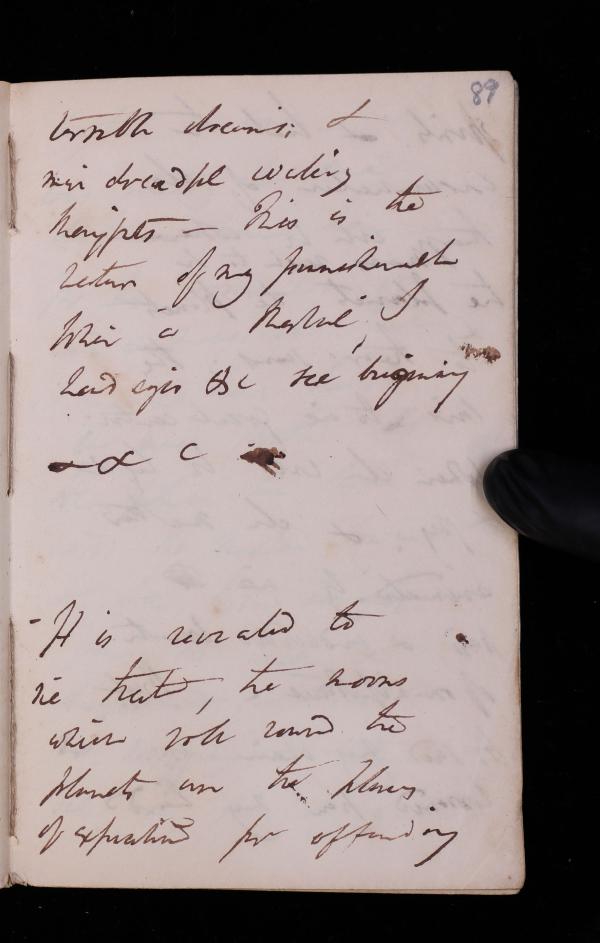 89
terrible dreams; &
my dreadful waking
thoughts - This is the
nature of my punishment
when a mortal, I
had eyes &c see beginning
&c
- It is revealed to
me that, the moons
which roll round the
planets are the places
of expiation for offending